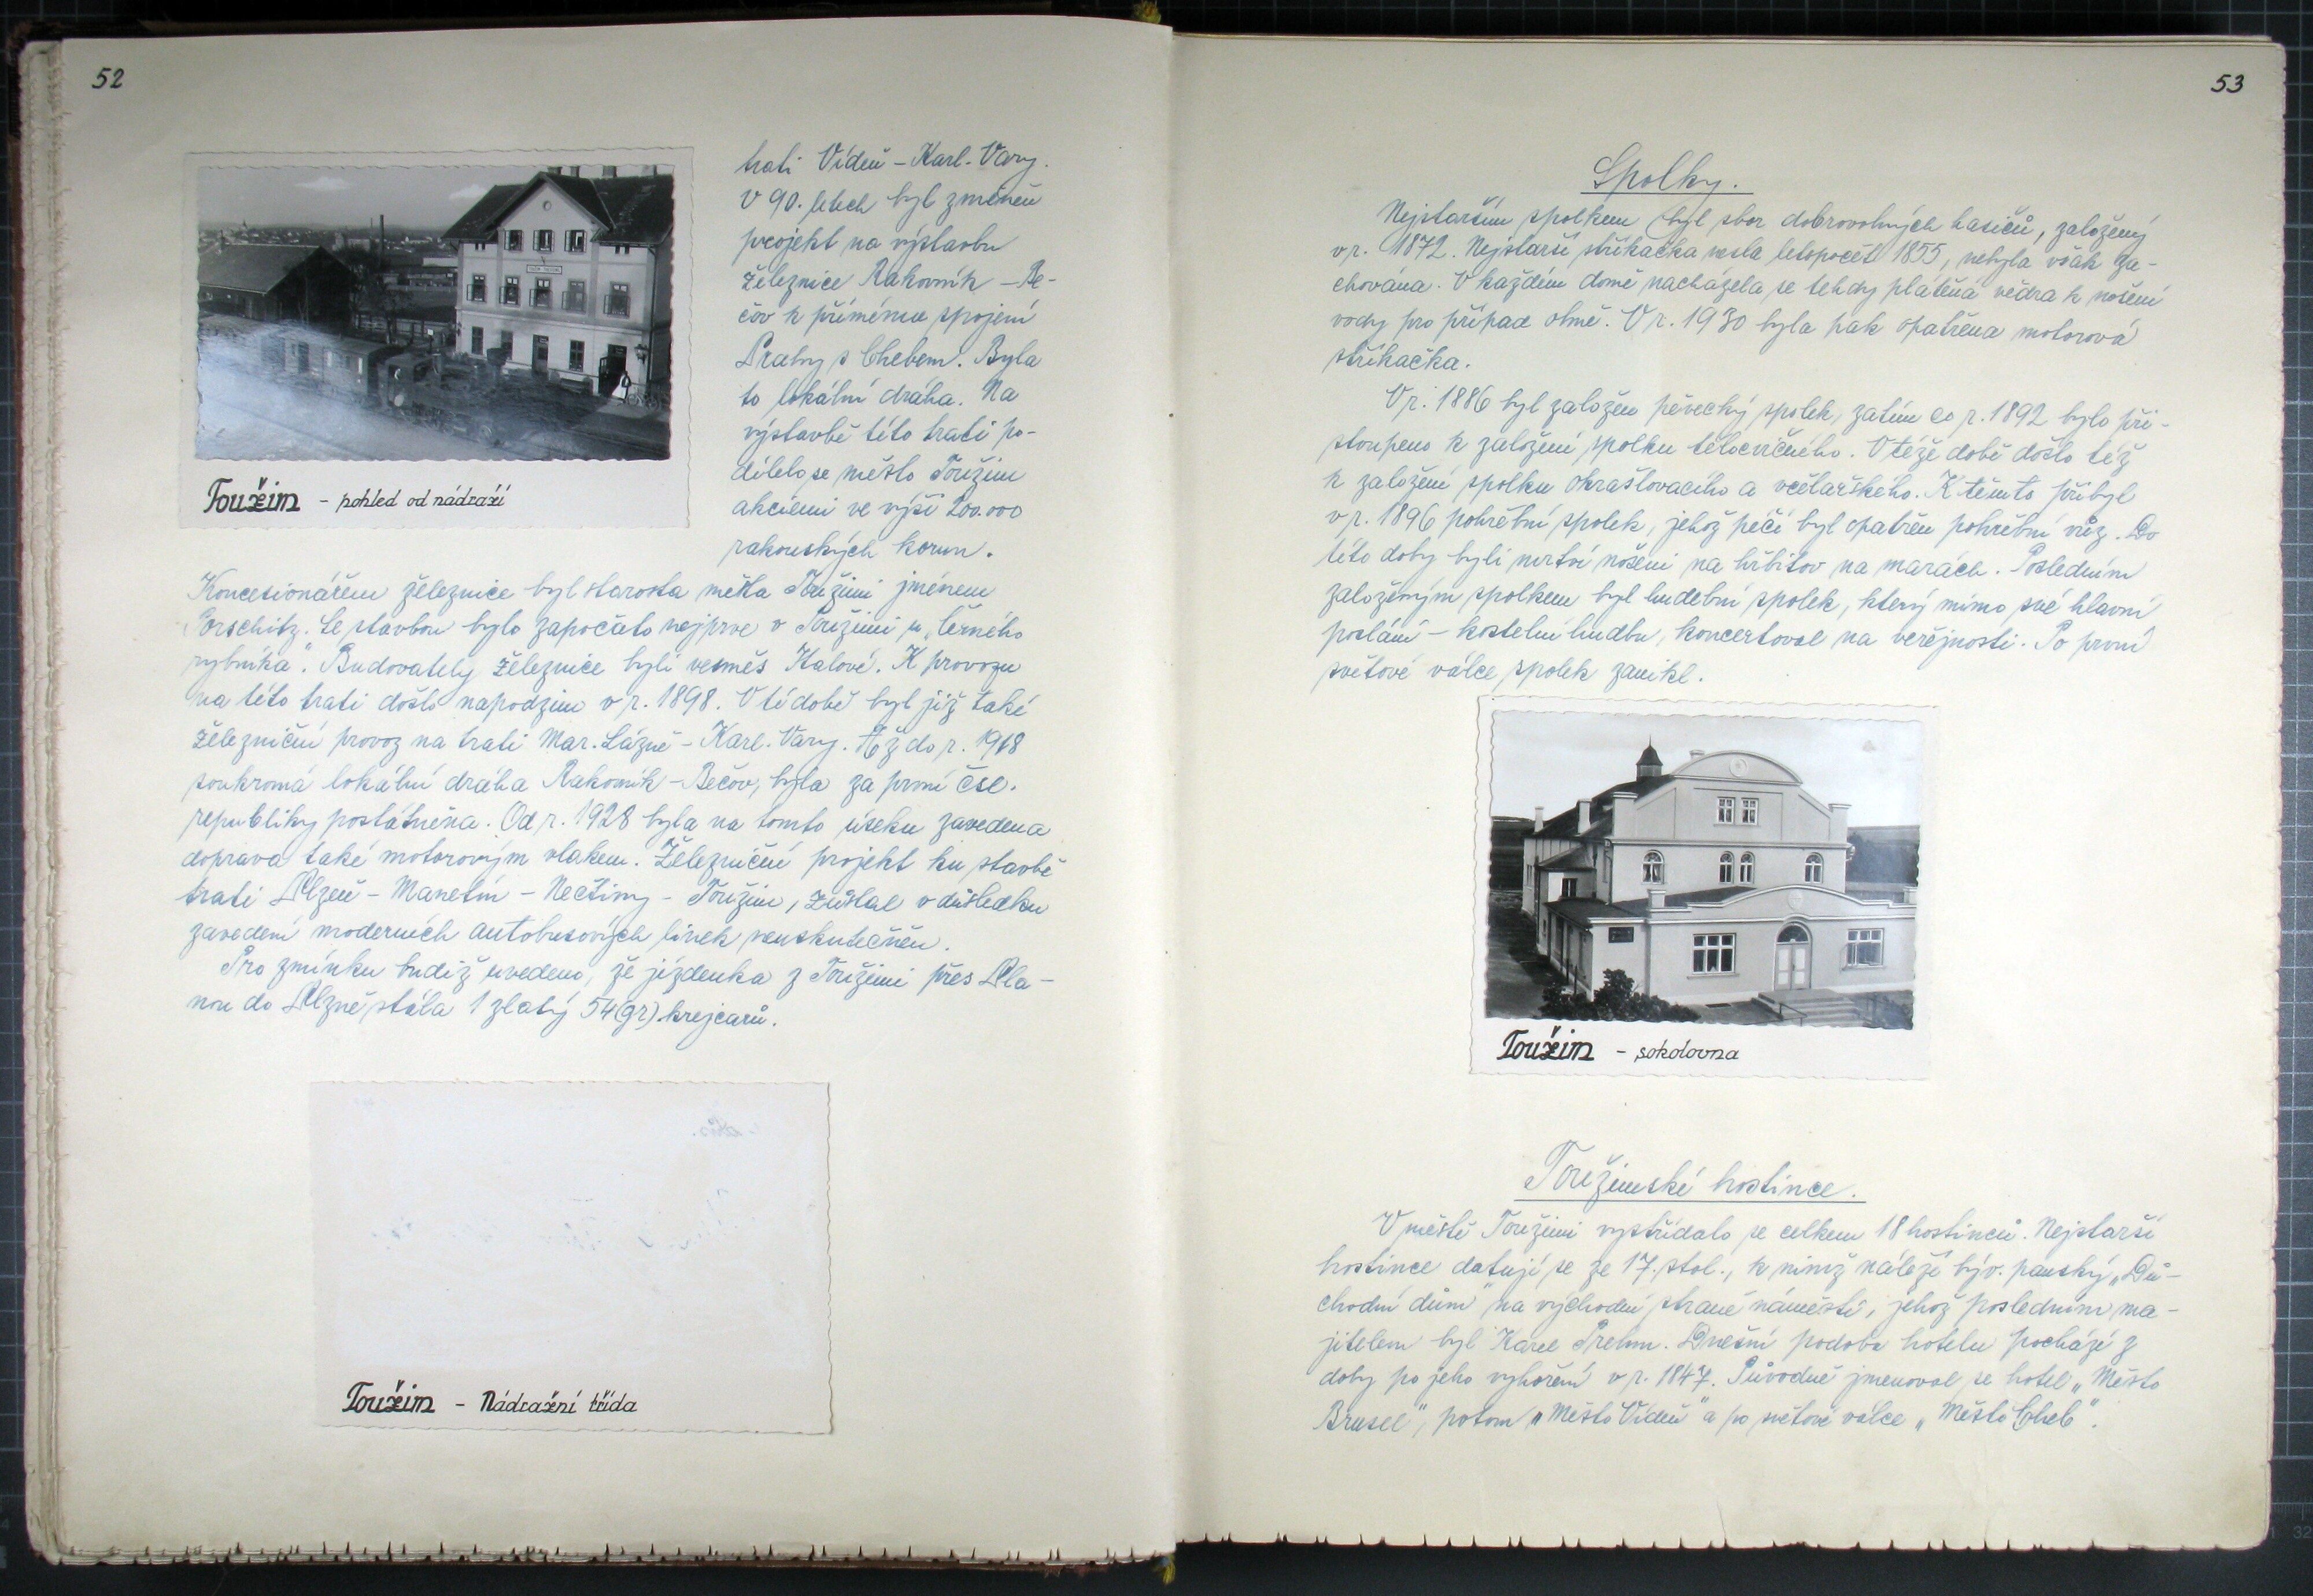 52
trati Vídeň - Karl. Vary.
V 90. letech byl změněn
projekt na výstavbu
železnice Rakovník - Be-
čov k přímému spojení
Prahy s Chebem. Byla
to lokální dráha. Na
výstavbě této trati po-
dílelo se město Toužim
akciemi ve výši 200.000
rakouských korun.
Toužim - pohled od nádraží
Koncesionářem železnice byl starosta města Toužimi jménem
Porschitz. Se stavbou bylo započato nejprve v Toužimi u "Černého
rybníka". Budovately železnice byli vesměs Italové. K provozu
na této trati došlo napodzim v r. 1898. V té době byl již také
železniční provoz na trati Mar. Lázně - Karl. Vary. Až do r. 1918
soukromá lokální dráha Rakovník - Bečov, byla za první čsl.
republiky postátněna. Od r. 1928 byla na tomto úseku zavedena
doprava také motorovým vlakem. Železniční projekt ku stavbě
trati Plzeň - Manetín - Nečtiny - Toužim, zůstal v důsledku
zavedení moderních autobusových linek neuskutečněn.
Pro zmínku budiž uvedeno, že jízdenka z Toužimi přes Pla-
nou do Plzně stála 1 zlatý 54 (gr) krejcarů.
Toužim - Nádražní třída
53
Spolky.
Nejstarším spolkem byl sbor dobrovolných hasičů, založený
v r. 1872. Nejstarší stříkačka nesla letopočet 1855, nebyla však za-
chována. V každém domě nacházela se tehdy plátěná vědra k nošení
vody pro případ ohně. V r. 1930 byla pak opatřena motorová
stříkačka.
V r. 1886 byl založen pěvecký spolek, zatím co r. 1892 bylo při-
stoupeno k založení spolku tělocvičného. V téže době došlo též
k založení spolku okrašlovacího a včelařského. K těmto přibyl
v r. 1896 pohřební spolek, jehož péčí byl opatřen pohřební vůz. Do
této doby byli mrtví nošeni na hřbitov na marách. Posledním
založeným spolkem byl hudební spolek, který mimo své hlavní
poslání - kostelní hudbu, koncertoval na veřejnosti. Po první
světové válce spolek zanikl.
Toužim - sokolovna
Toužimské hostince.
V městě Toužimi vystřídalo se celkem 18 hostinců. Nejstarší
hostince datují se ze 17. stol., k nimž náleží býv. panský "Dů-
chodní dům" na východní straně náměstí, jehož posledním ma-
jitelem byl Karel Prehm. Dnešní podoba hotelu pochází z
doby po jeho vyhoření v r. 1847. Původně jmenoval se hotel "Město
Brusel", potom "Město Vídeň" a po světové válce "Město Cheb".